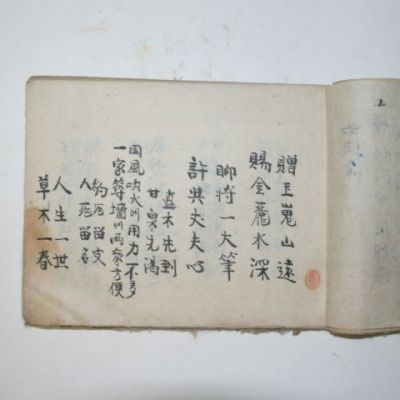 贈玉嵬山遠
賜金麗水深
聊將一大筆
許與丈夫心
直木先到
甘泉先渴
因風吹火川用力不多
一家等墻川兩家方便
豹死留皮
人死留名
人生一世
草木一春